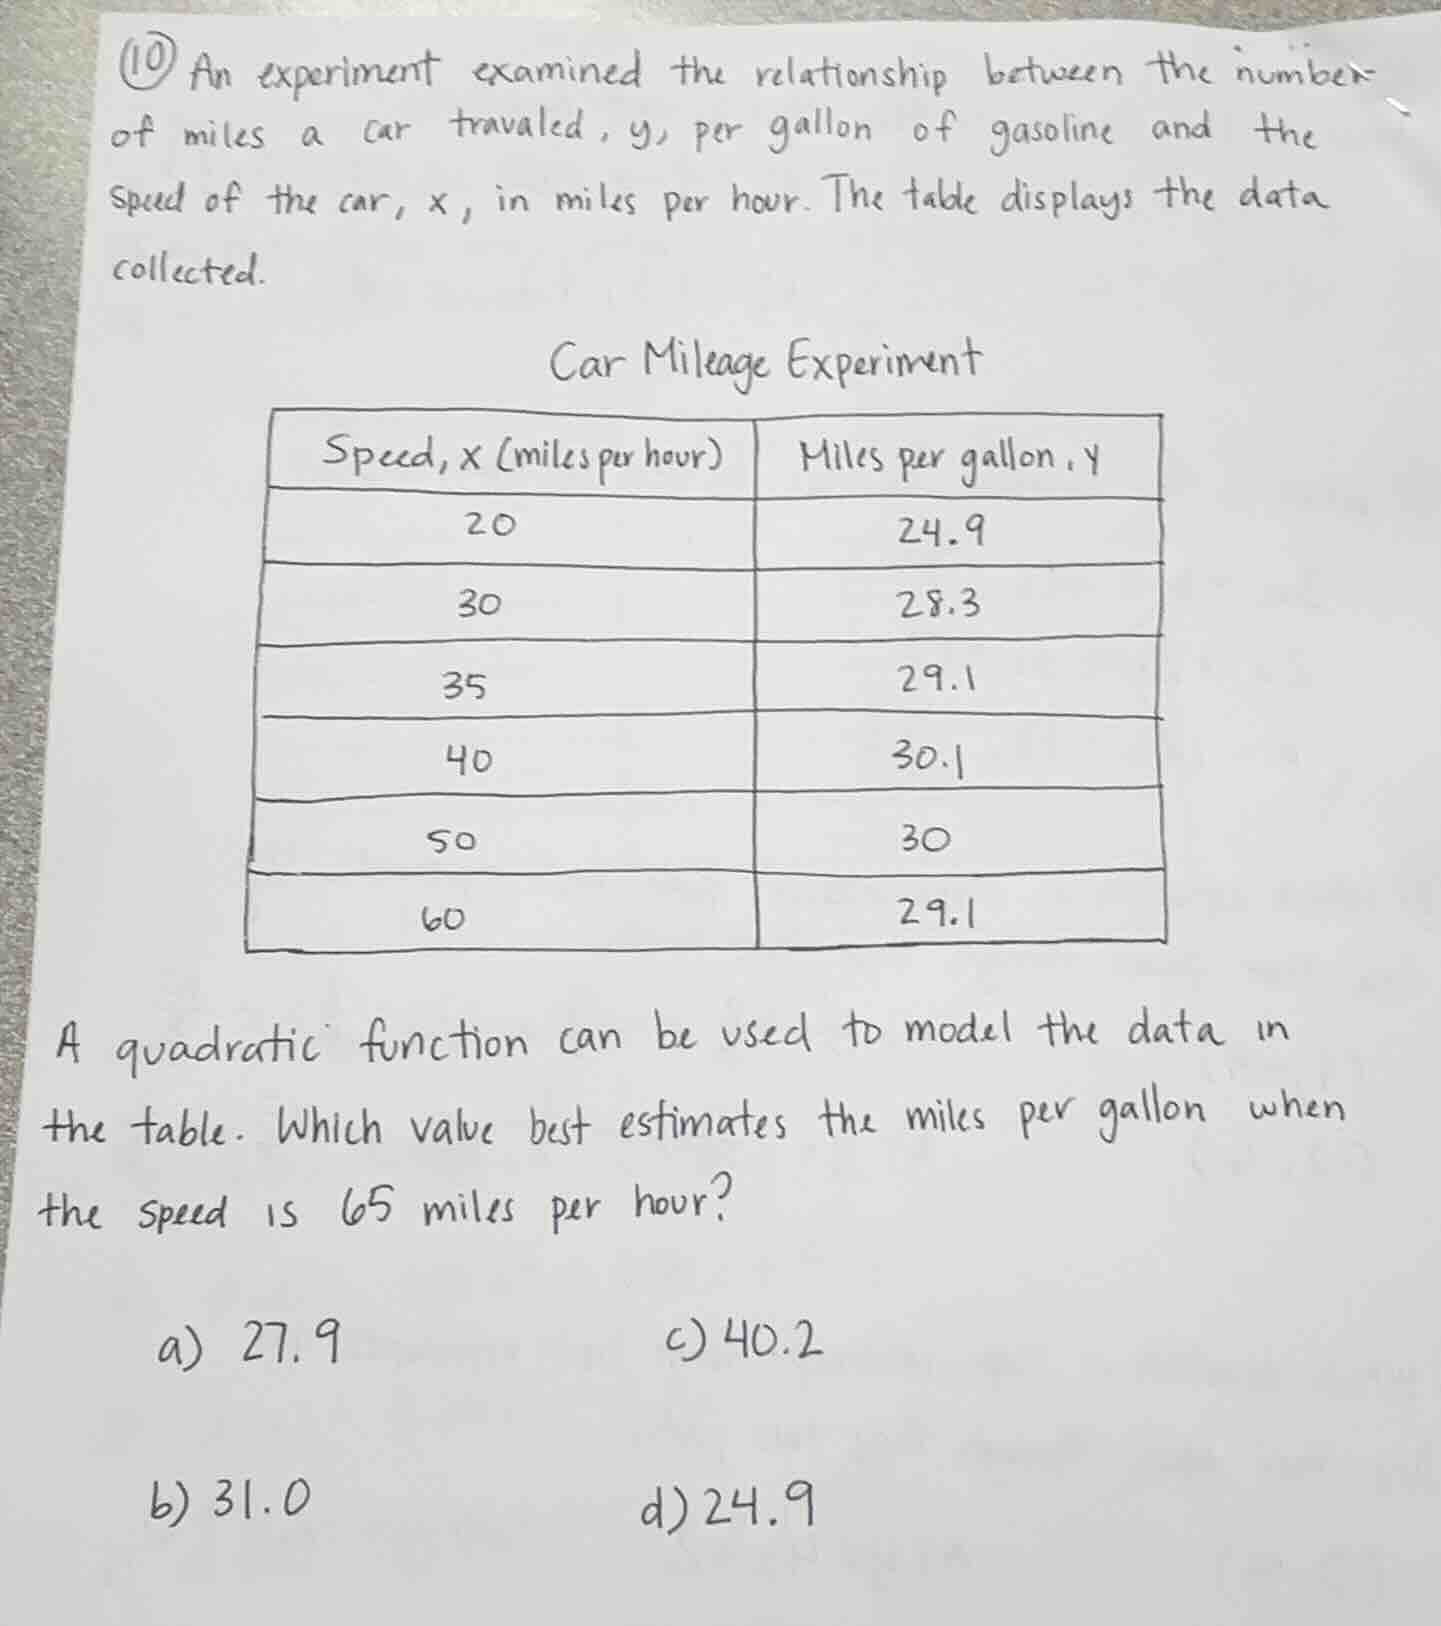 ⑩ An experiment examined the relationship between the number
of miles a car travaled, y, per gallon of gasoline and the
speed of the car, x, in miles per hour. The table displays the data
collected.
Car Mileage Experiment
Speed, x (miles per hour) Miles per gallon, y
20 24.9
30 28.3
35 29.1
40 30.1
50 30
60 29.1
A quadratic function can be used to model the data in
the table. Which value best estimates the miles per gallon when
the speed is 65 miles per hour?
a) 27.9 c) 40.2
b) 31.0 d) 24.9